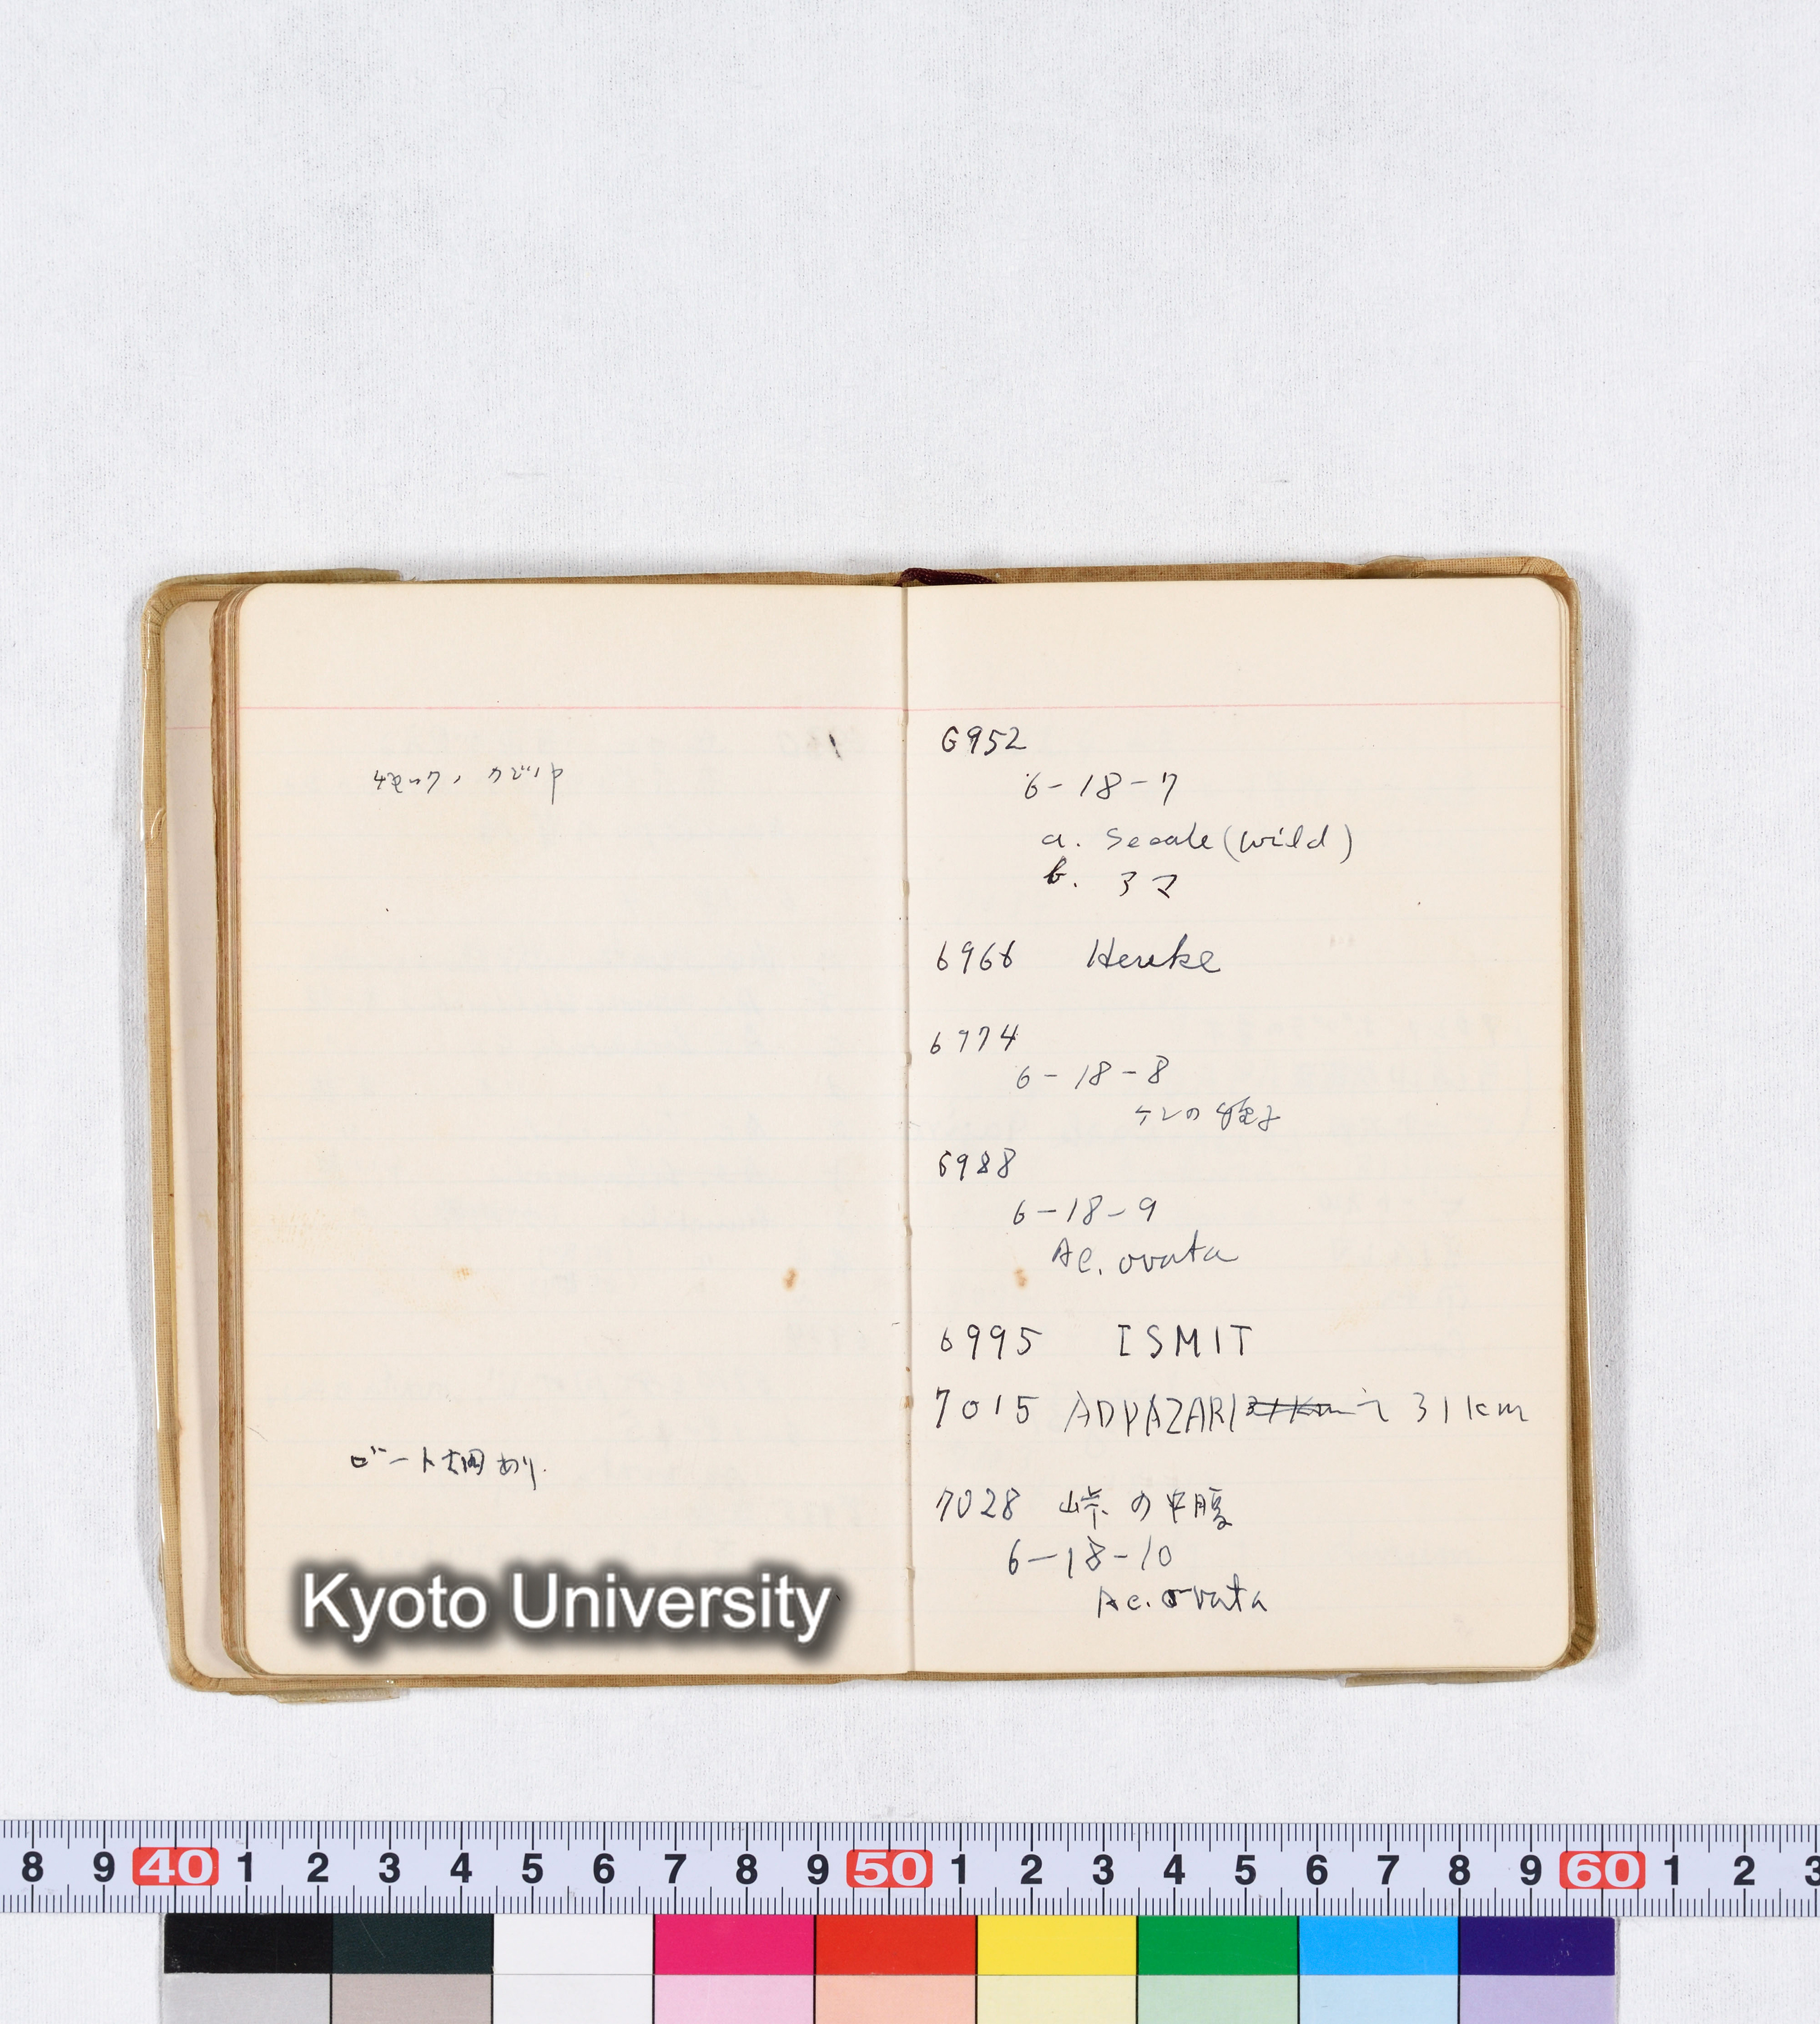 ビート畑あり.
Kyoto University
6952
6-18-7
a. Secale (wild)
b. アマ
6966 Hereke
6974
6-18-8
ケシの
6988
6-18-9
Ae. ovata
6995 ISMIT
7015 ADPAZARI 31km
7028 峠の中腹
6-18-10
Ae. ovata
8 9 40 1 2 3 4 5 6 7 8 9 50 1 2 3 4 5 6 7 8 9 60 1 2 3